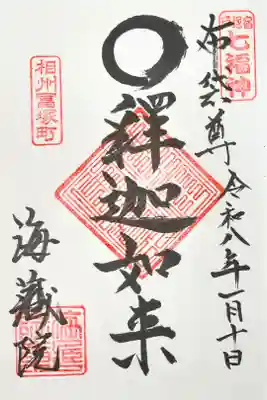 七福神
布袋尊 令和八年一月十日
釋迦如来
相州高塚町
海蔵院